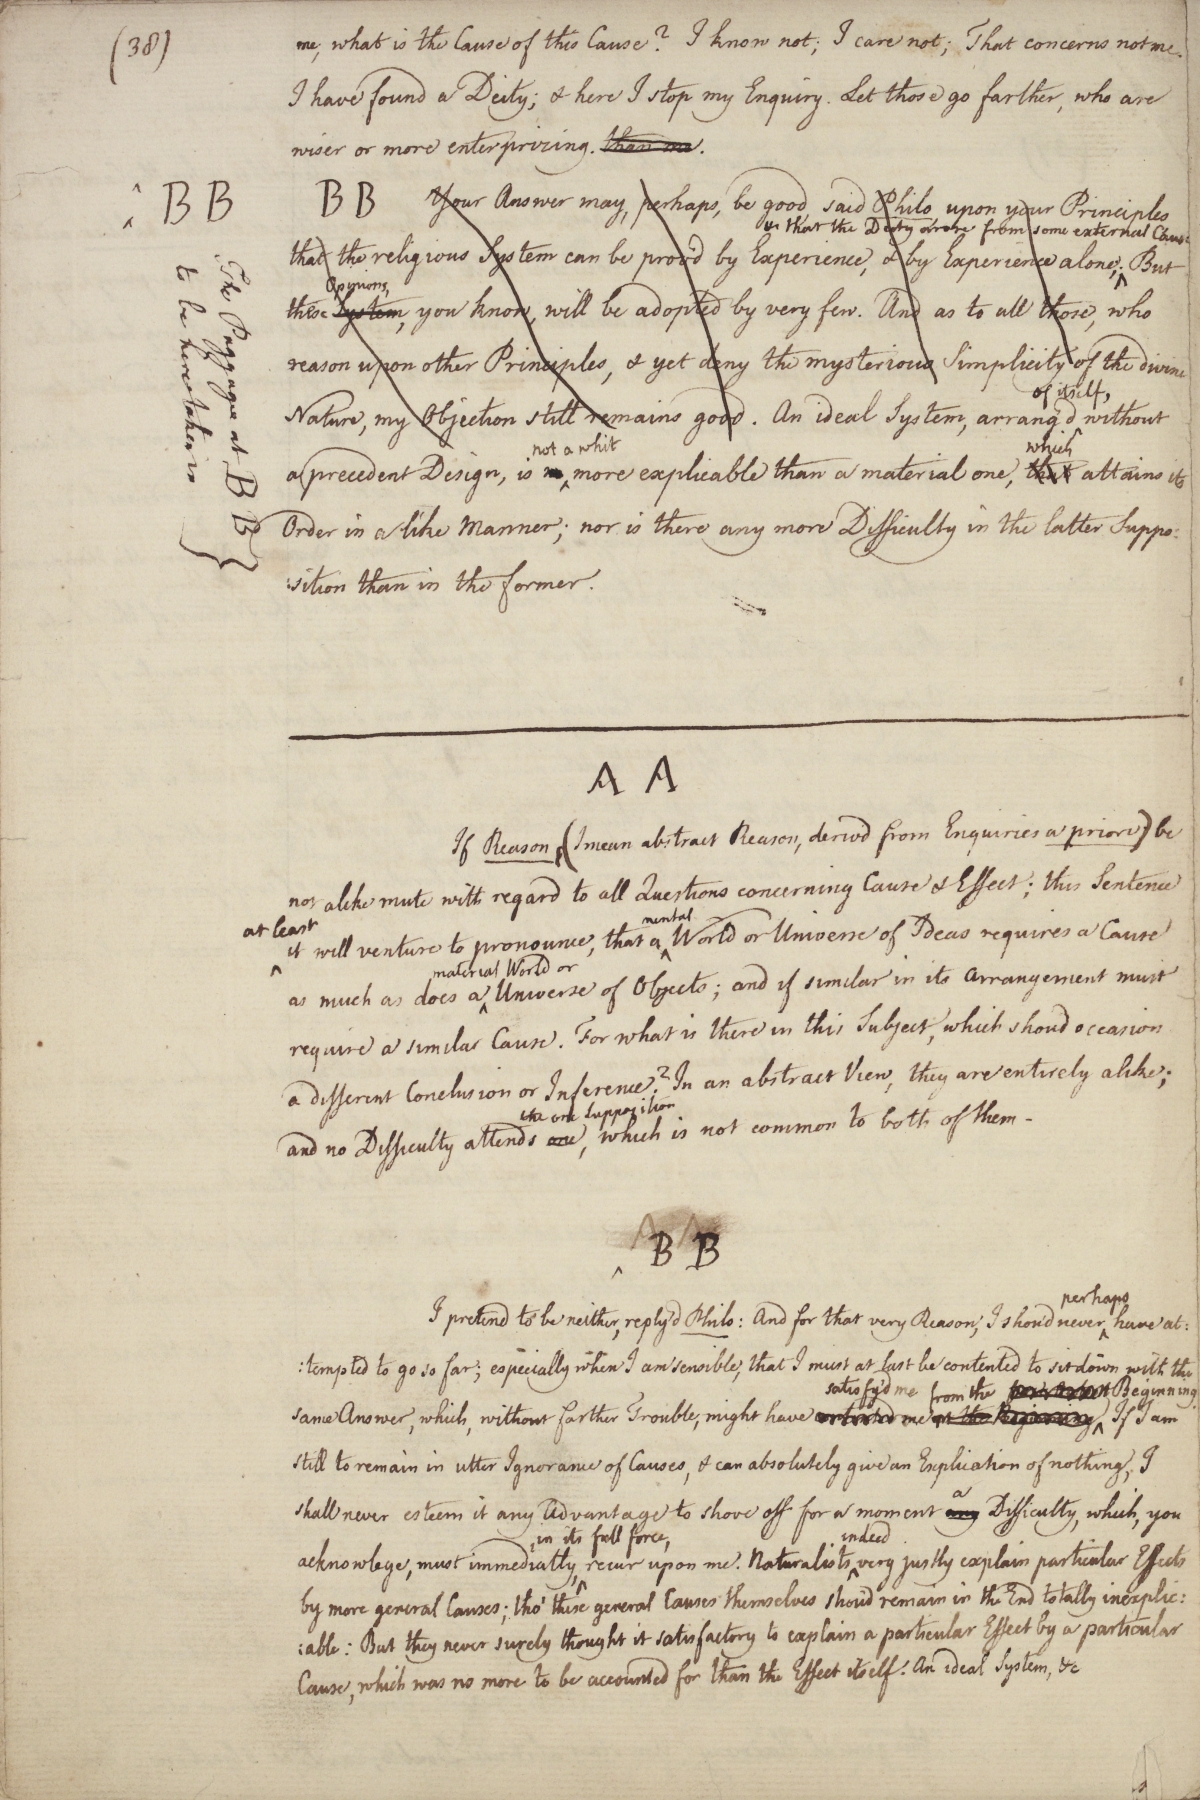 (38)
me, what is the Cause of this Cause? I know not; I care not; That concerns not me.
I have found a Deity; & here I stop my Enquiry. Let those go farther, who are
wiser or more enterprizing. than me.
BB
BB Your Answer may, perhaps, be good, said Philo, upon your Principles
or that the Deity arose from some external Cause
that the religious System can be prov'd by Experience, & by Experience alone; But
Opinions,
these System, you know, will be adopted by very few. And as to all those, who
reason upon other Principles, & yet deny the mysterious Simplicity of the divine
of itself,
Nature, my Objection still remains good. An ideal System, arrang'd without
not a whit which
a precedent Design, is no more explicable than a material one, that attains its
Order in a like Manner; nor is there any more Difficulty in the latter Suppo:
:sition than in the former.
The Passage at BB
to be here taken in
AA
If Reason (I mean abstract Reason, deriv'd from Enquiries a priori) be
not alike mute with regard to all Questions concerning Cause & Effect; this Sentence
at least mental
it will venture to pronounce, that a World or Universe of Ideas requires a Cause
material World or
as much as does a Universe of Objects; and if similar in its Arrangement must
require a similar Cause. For what is there in this Subject, which shoud occasion
a different Conclusion or Inference? In an abstract View, they are entirely alike;
the one Supposition
and no Difficulty attends one, which is not common to both of them -
AA
BB
perhaps
I pretend to be neither, reply'd Philo: And for that very Reason, I shoud never have at:
:tempted to go so far; especially when I am sensible, that I must at last be contented to sit down with the
satisfy'd me from the Beginning
same Answer, which, without farther Trouble, might have me at the Beginning. If I am
still to remain in utter Ignorance of Causes, & can absolutely give an Explication of nothing, I
a
shall never esteem it any Advantage to shove off for a moment any Difficulty, which, you
in its full force, indeed
acknowlege, must immediatly, recur upon me. Naturalists very justly explain particular Effects
by more general Causes; tho' these general Causes themselves shoud remain in the End totally inexplic:
:able: But they never surely thought it satisfactory to explain a particular Effect by a particular
Cause, which was no more to be accounted for than the Effect itself. An ideal System, &c